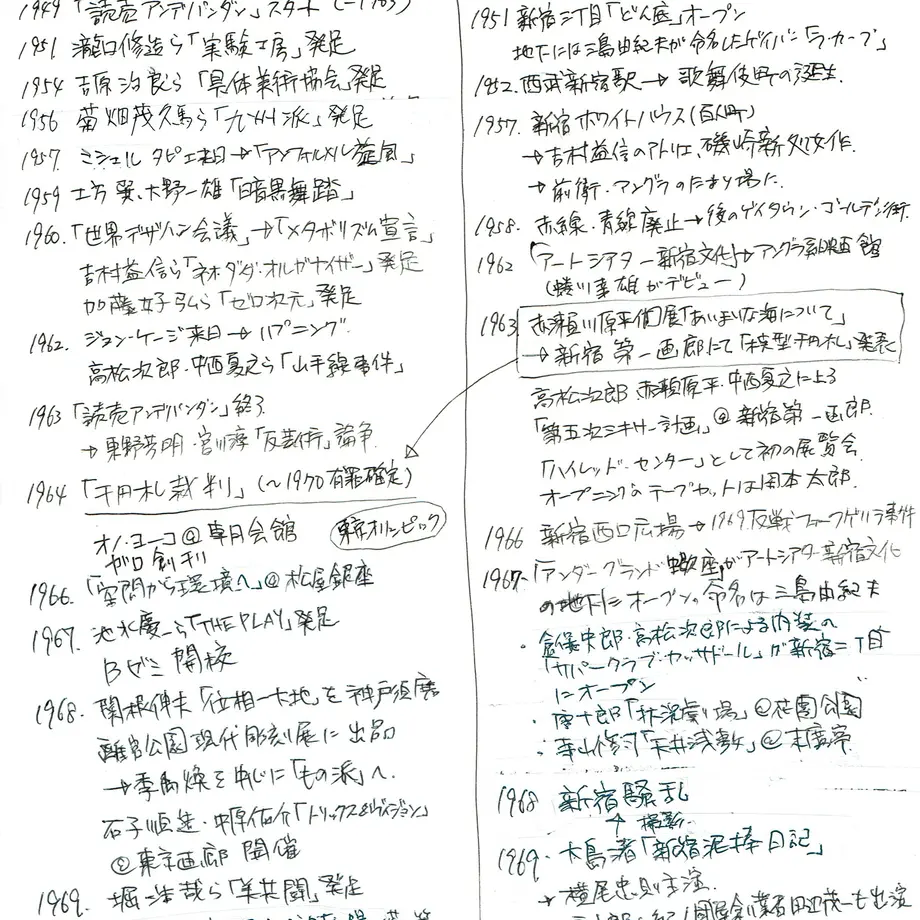 1949 「読売アンデパンダン」スタート (〜1963)
1951 瀧口修造ら「実験工房」発足
1954 吉原治良ら「具体美術協会」発足
1956 菊畑茂久馬ら「九州派」発足
1957 ミシェル タピエ来日→「アンフォルメル旋風」
1959 土方巽、大野一雄「暗黒舞踏」
1960.「世界デザイン会議」→「メタボリズム宣言」
吉村益信ら「ネオダダ・オルガナイザー」発足
加藤好弘ら「ゼロ次元」発足
1962. ジョン・ケージ来日→ハプニング.
高松次郎・中西夏之ら「山手線事件」
1963「読売アンデパンダン」終了
→東野芳明・宮川淳「反芸術」論争.
1964 「千円札裁判」(〜1970有罪確定)
オノ・ヨーコ@草月会館
東京オリンピック
ガロ創刊
1966.「空間から環境へ」@松屋銀座
1967. 池水慶一ら「THE PLAY」発足
Bゼミ開校
1968. 関根伸夫「位相-大地」を神戸須磨
離宮公園現代彫刻展に出品
→李禹煥を中心に「もの派」へ.
石子順造・中原佑介「トリックス&ヴィジョン」
@東京画廊 開催
1969. 堀浩哉ら「美共闘」発足
1951 新宿三丁目「どん底」オープン
地下には三島由紀夫が命名したゲイバー「ラ・カーブ」
1952. 西武新宿駅→歌舞伎町の誕生.
1957. 新宿ホワイトハウス(百人町)
→吉村益信のアトリエ、磯崎新処女作.
→前衛・アングラのたまり場に.
1958. 赤線・青線廃止→後のゲイタウン・ゴールデン街.
1962 「アートシアター新宿文化」→アングラ系映画館
(蜷川幸雄がデビュー)
1963 赤瀬川原平個展「あいまいな海について」
→新宿第一画廊にて「模型千円札」発表
高松次郎 赤瀬原平・中西夏之による
「第五次ミキサー計画」@新宿第一画廊.
「ハイレッド・センター」として初の展覧会
オープニングのテープカットは岡本太郎.
1966 新宿西口広場→1969反戦フォークゲリラ事件
1967.「アンダーグランド蠍座」がアートシアター新宿文化
の地下にオープン。命名は三島由紀夫
・倉俣史郎・高松次郎による内装の
「サパークラブ・カッサドール」が新宿二丁目
にオープン
・唐十郎「状況劇場」@花園公園
・寺山修司「天井桟敷」@末廣亭
1968 新宿騒乱
↑ 撮影.
1969. 大島渚「新宿泥棒日記」
→横尾忠則主演.